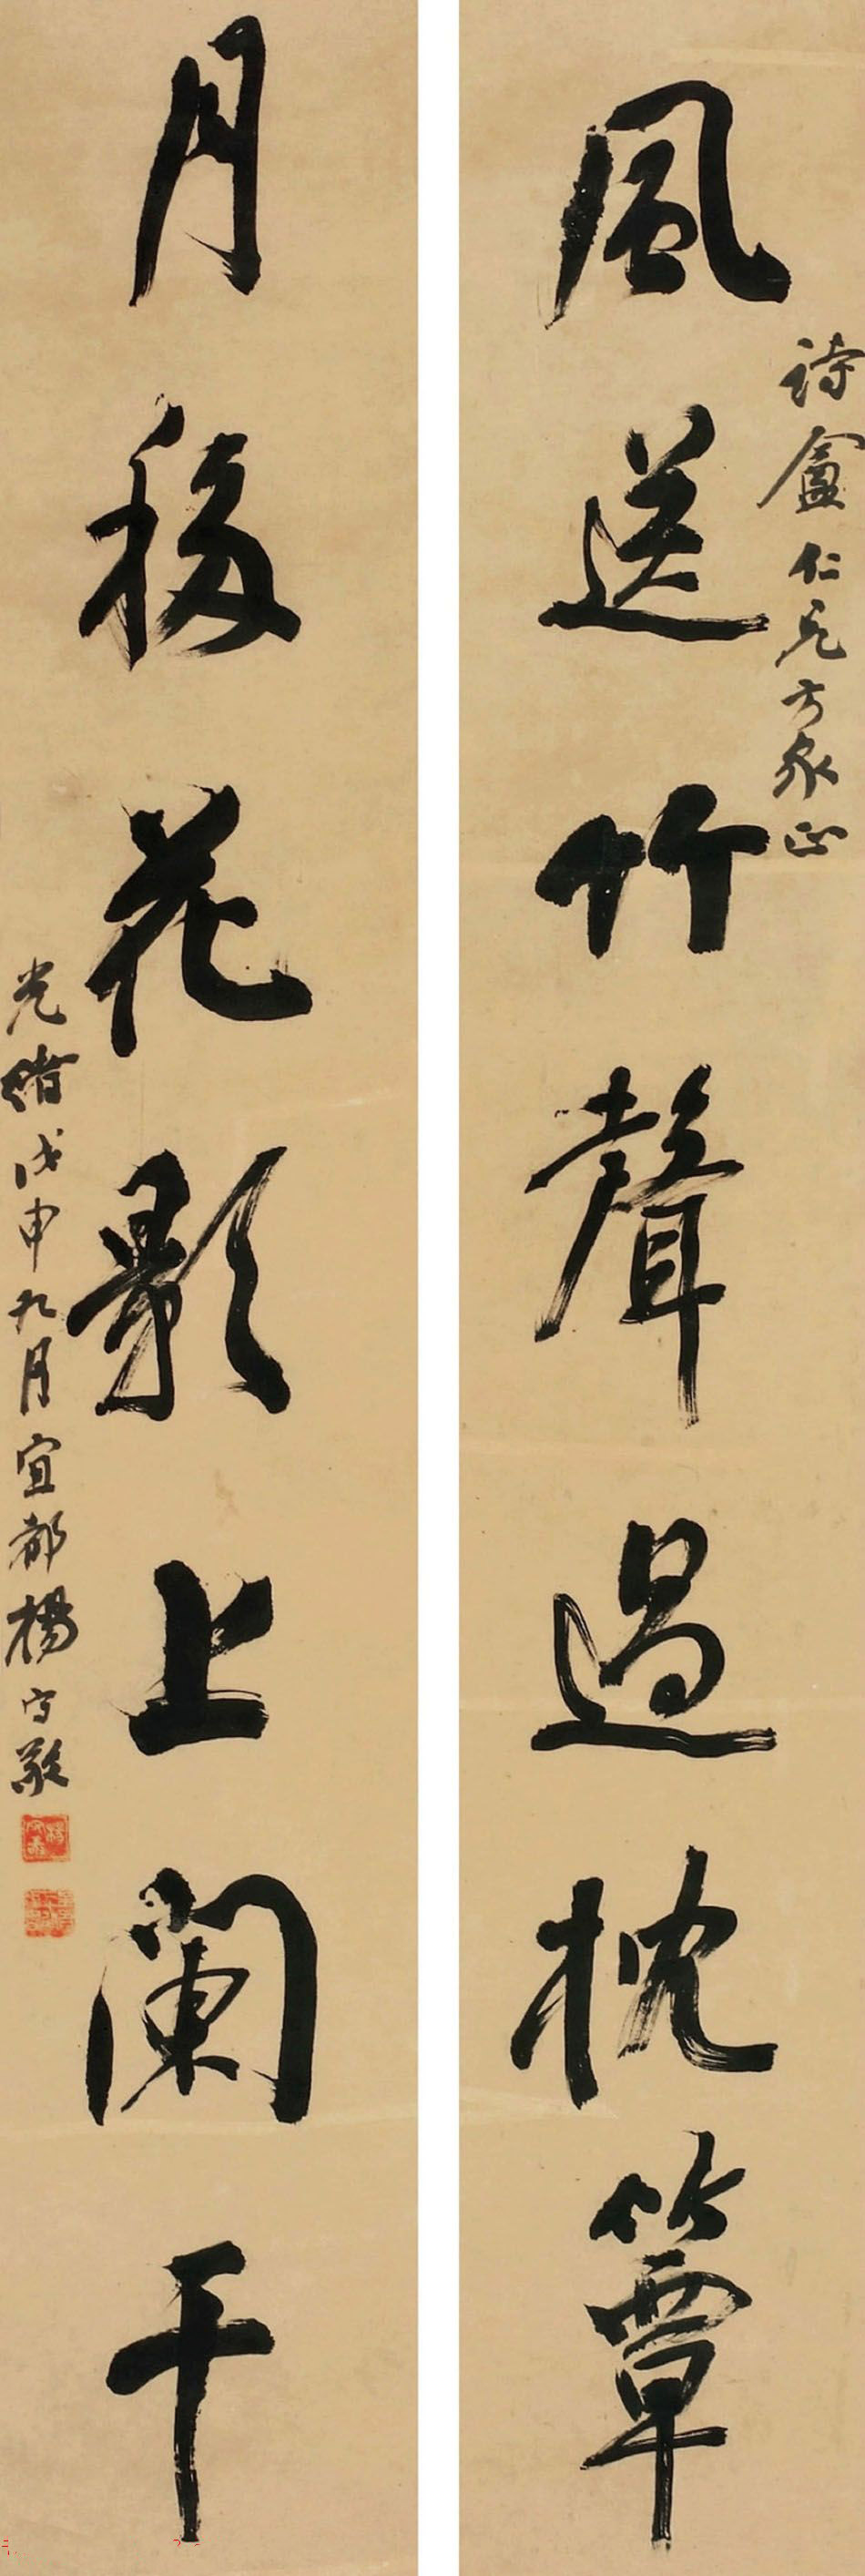 風送竹聲過枕簟
詩盦仁兄方家正
月移花影上闌干
光緒戊申九月宜都楊守敬